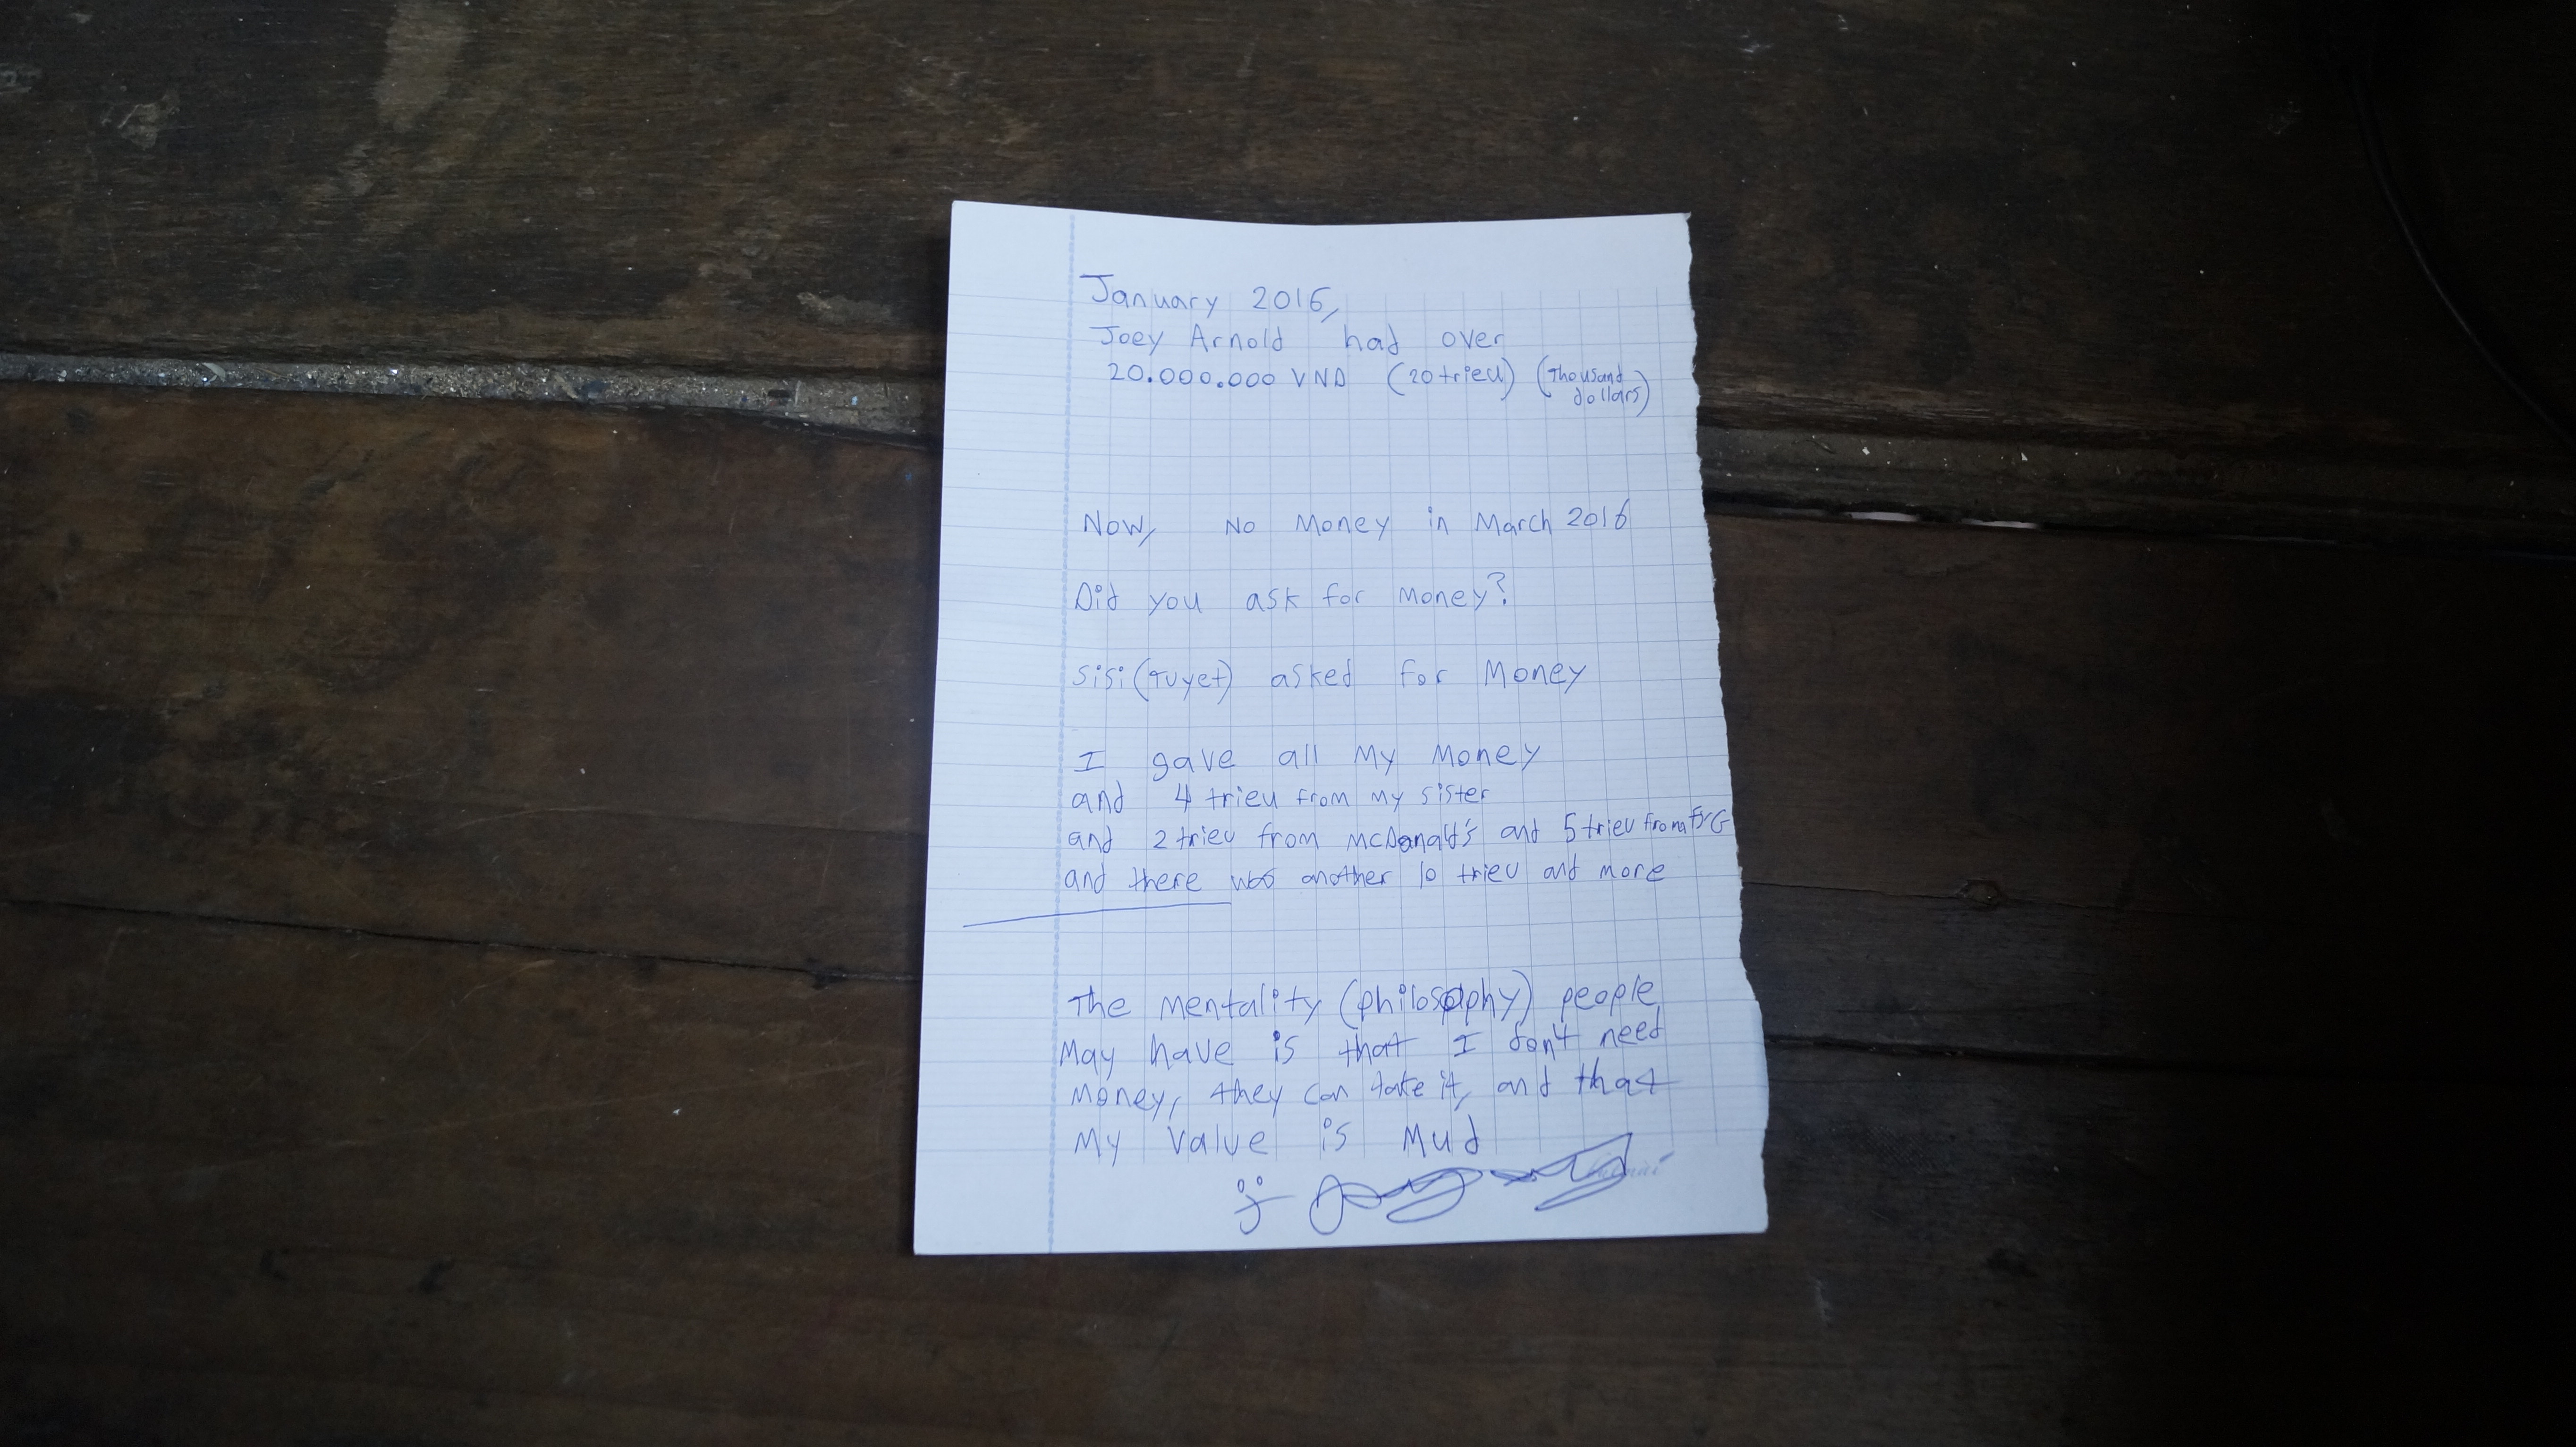 January 2016,
Joey Arnold had over
20.000.000 VND (20 trieu) (Thousand
dollars)
Now, No Money in March 2016
Did you ask for money?
Sisi (Tuyet) asked for Money
I gave all My Money
and 4 trieu from my sister
and 2 trieu from McDonald's and 5 trieu from
and there was another 10 trieu and more
The mentality (philosophy) people
May have is that I don't need
Money, they can take it, and that
My value is Mud